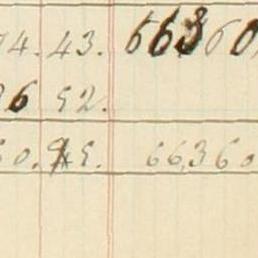 74. 43. 663 60
36 52.
60. 95. 66,360